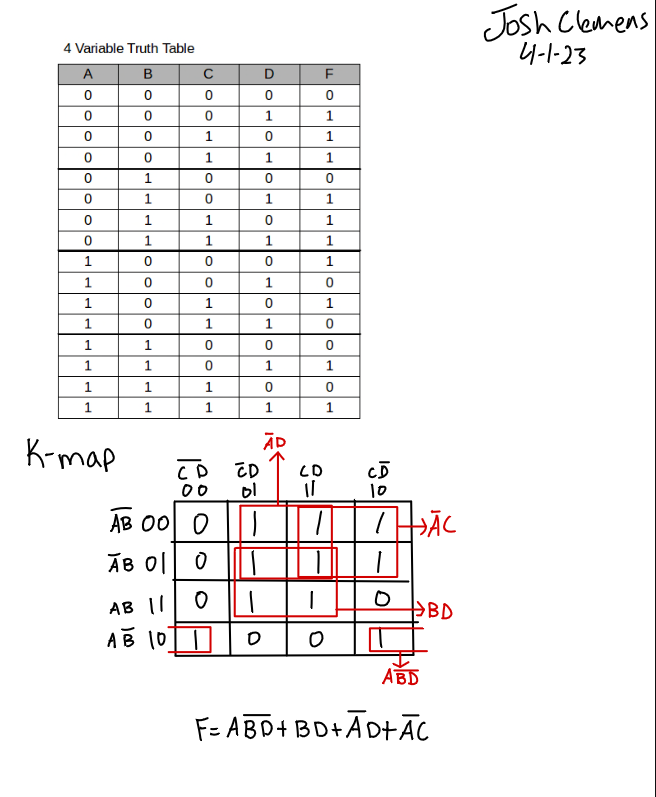 Josh Clemens
4-1-23
4 Variable Truth Table
A B C D F
0 0 0 0 0
0 0 0 1 1
0 0 1 0 1
0 0 1 1 1
0 1 0 0 0
0 1 0 1 1
0 1 1 0 1
0 1 1 1 1
1 0 0 0 1
1 0 0 1 0
1 0 1 0 1
1 0 1 1 0
1 1 0 0 0
1 1 0 1 1
1 1 1 0 0
1 1 1 1 1
K-map
A̅D
C̅D̅ C̅D CD CD̅
00 01 11 10
A̅B̅ 00 0 1 1 1 A̅C
A̅B 01 0 1 1 1
AB 11 0 1 1 0 BD
AB̅ 10 1 0 0 1
AB̅D̅
F= AB̅D̅+BD+A̅D+A̅C